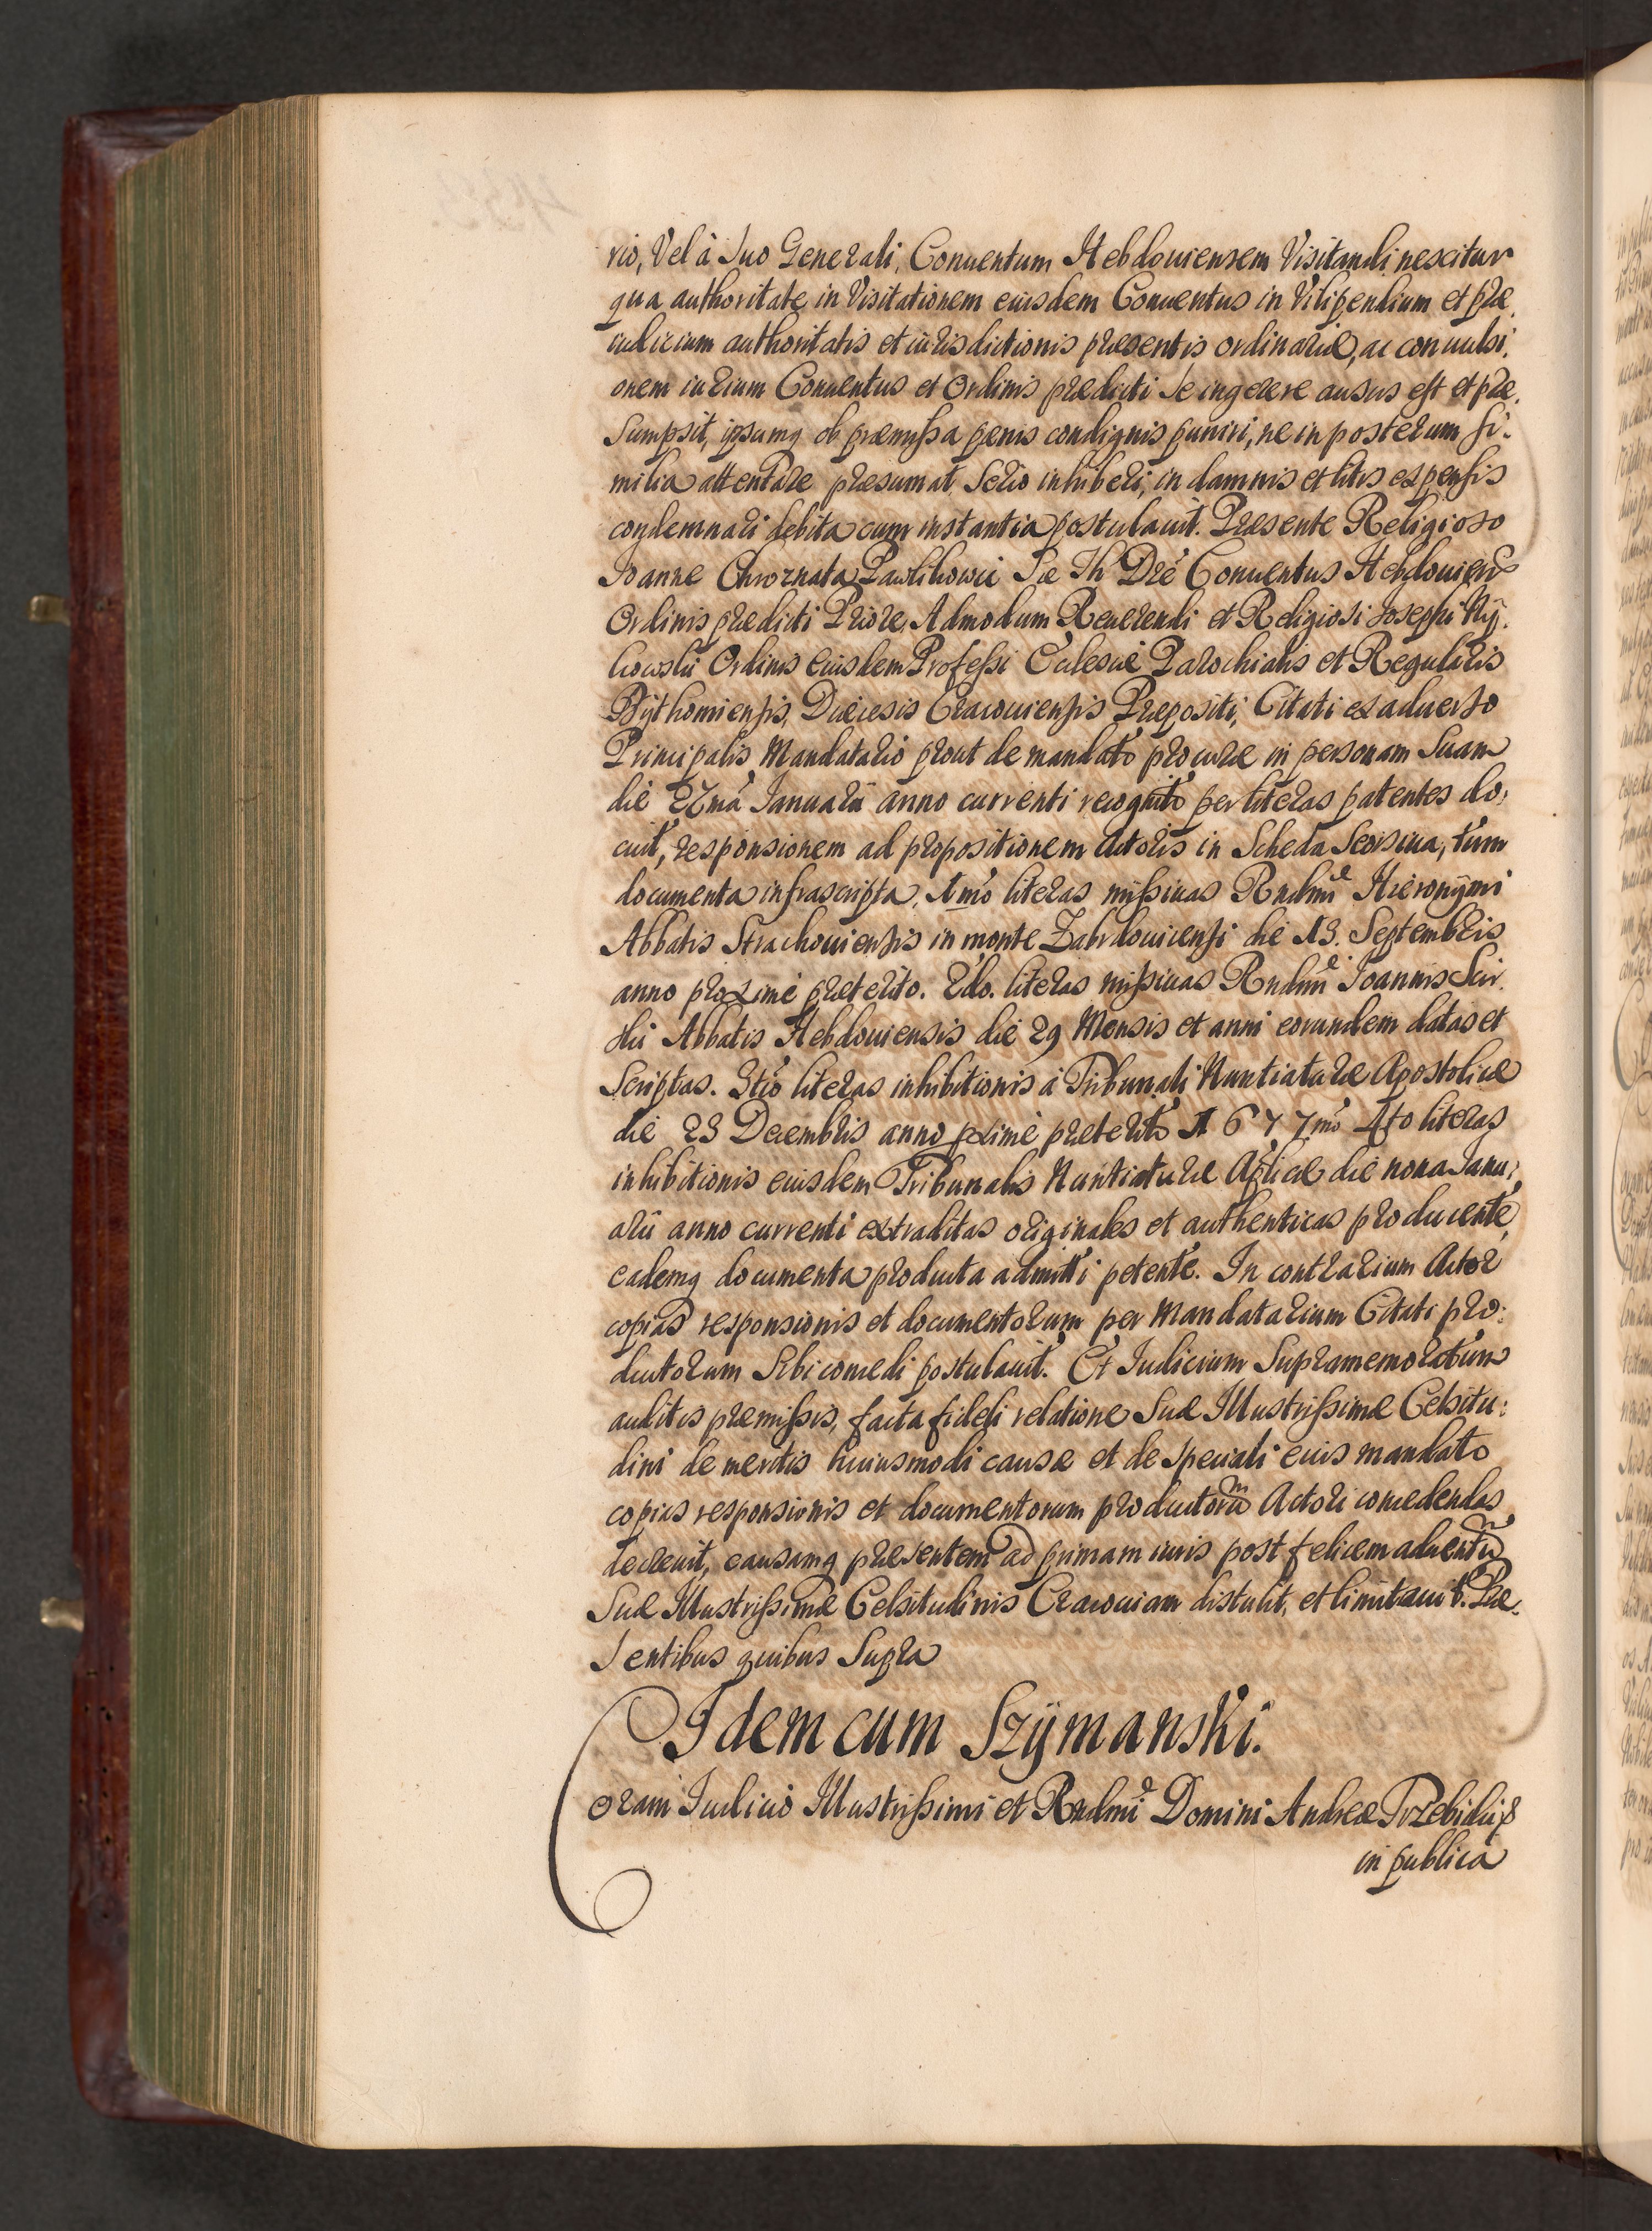 rio, Vel à Suo Generali, Conuentum Hebdouiensem Visitandi nescitur
qua authoritate in Visitationem eiusdem Conuentus in Vilipendium et præ,
iudicium authoritatis et iurisdictionis præsentis ordinariæ, ac conuulsi,
onem iurium Conuentus et Ordinis prædicti Se ingerere ausus est et præ,
Sumpsit, ipsumq ob præmissa pœnis condignis puniri, ne in posterum Si-
milia attentare præsumat Serio inhiberi, in damnis et litis expensis
condemnari debita cum instantia postulauit. Præsente Religioso
Joanne Chwoznata Pawlikowic Sæ Th Dre Conuentus Hebdouien
Ordinis prædicti Priore, Admodum Reuerendi et Religiosi Josephi
Ordinis Eiusdem Professi Ecclesiæ Parochialis et Regularis
Bÿthomiensis, Diœcesis Cracouiensis Præpositi, Citati ex aduerso
Principalis Mandatario prout de mandato procuræ in personam Suam
die 27ma Januarii anno currenti recognito per literas patentes do,
cuit, responsionem ad propositionem Actoris in Scheda Seorsiua, tum
documenta infrascripta. 1mo literas missiuas Rndmi Hieronÿmi
Abbatis Strachouiensis in monte Zabrdouicensi die 13. Septembris
anno proximè præterito. 2do. literas missiuas Rndmi Joannis
Abbatis Hebdouiensis die 29 Mensis et anni eorundem datas et
Scriptas. 3tio literas inhibitionis à Tribunali Nuntiaturæ Apostolicæ
die 23 Decembris anno pximè præterito 1677mo 4to literas
inhibitionis eiusdem Tribunalis Nuntiaturæ Aplicæ die nona Janu,
arii anno currenti extraditas originales et authenticas producente,
eademq documenta producta admitti petente. In contrarium Actor
copias responsionis et documentorum per Mandatarium Citati pro:
ductorum Sibi concedi postulauit. Et Iudicium Supramemoratum
auditis præmissis, facta fideli relatione Suæ Illustrissimæ Celsitu:
dini de meritis huiusmodi causæ et de Speciali eius mandato
copias responsionis et documentorum productorũ Actori concedendas
decreuit, causamq præsentem ad primam iuris post felicem aduentũ
Suæ Illustrissimæ Celsitudinis Cracouiam distulit, et limitauit. Præ-
Sentibus quibus Supra
Idem cum Szÿmanski.
Coram Iudicio Illustrissimi et Rndmi Domini Andreæ Trzebicki
in publica